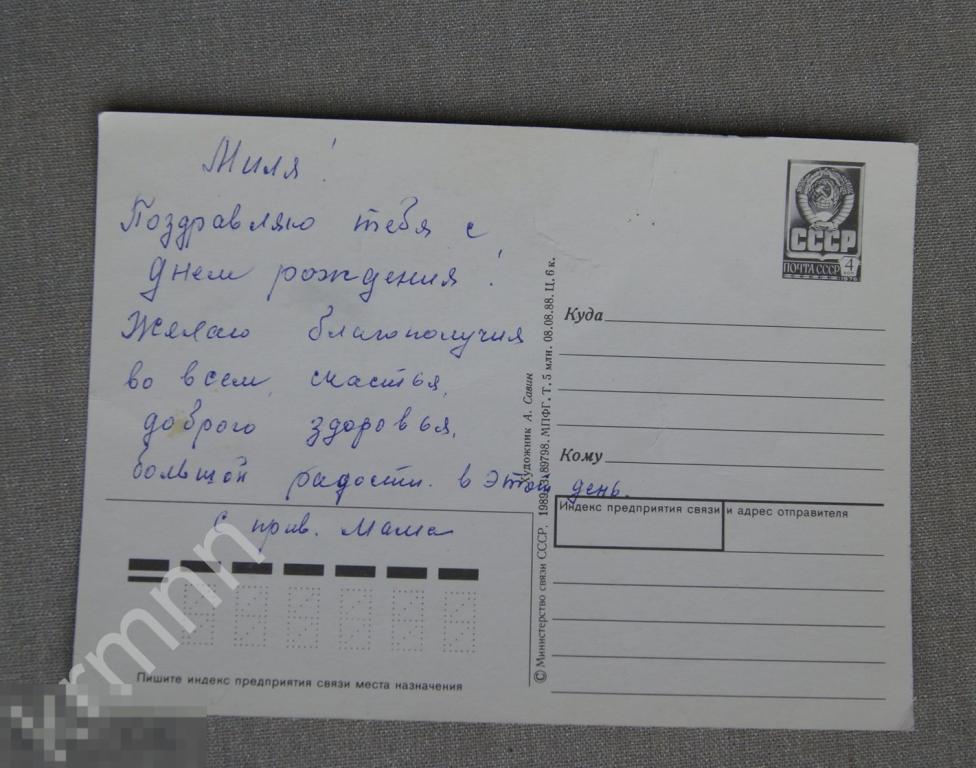 Миля!
Поздравляю тебя с
днем рождения!
Желаю благополучия
во всем, счастья,
доброго здоровья,
большой радости в этот день.
С прив. Мама
Пишите индекс предприятия связи места назначения
© Министерство связи СССР. 1989. З. 89798. МПФГ. Т. 5 млн. 08.08.88. Ц. 6 к.
Художник А. Савин
СССР
ПОЧТА СССР 4
Куда
Кому
Индекс предприятия связи и адрес отправителя
rmnn